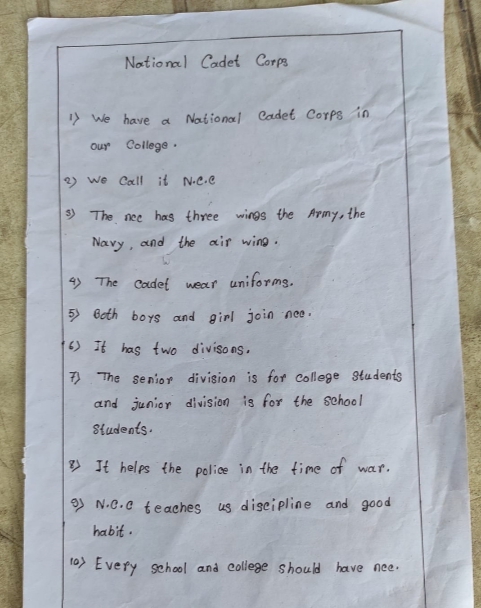 National Cadet Corps
1) We have a National Cadet Corps in
our College.
2) We Call it N.C.C
3) The ncc has three wings the Army, the
Navy, and the air wing.
4) The Cadet wear uniforms.
5) Both boys and girl join ncc.
6) It has two divisons.
7) The senior division is for college Students
and junior division is for the School
Students.
8) It helps the police in the time of war.
9) N.C.C teaches us discipline and good
habit.
10) Every School and college should have ncc.